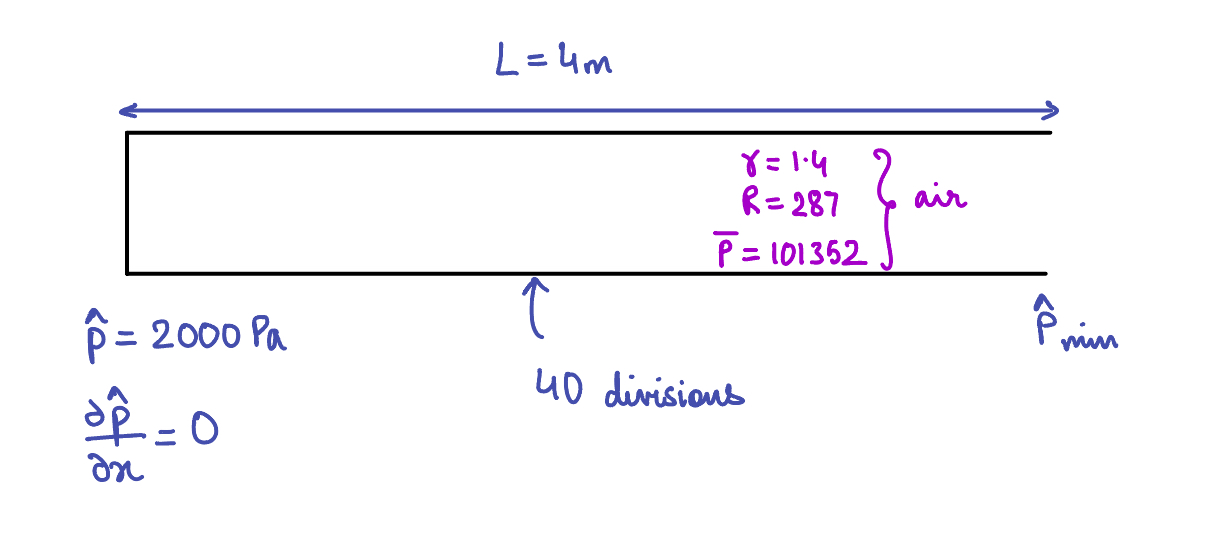 L = 4m
γ = 1.4
R = 287
P̅ = 101352
air
p̂ = 2000 Pa
∂p̂/∂x = 0
40 divisions
P̂min